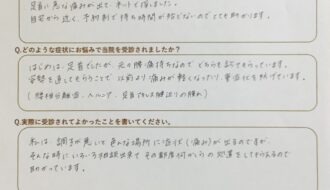 足首に急な痛みが出て、ネットで探しました。
自宅から近く、予約制で待ち時間が殆どないのでとても助かります。
Q.どのような症状にお悩みで当院を受診されましたか？
はじめは、足首でしたが、元々腰痛持ちなのでどちらも診てもらっています。
姿勢を直してもらうことで以前より痛みが軽くなったり、重症化を防げています。
(腰椎分離症、ヘルニア、足首
Q.実際に受診されてよかったことを書いてください。
私は、調子が悪いと色んな場所に症状(痛み)が出るのですが
そんな時にいろいろ相談出来てその都度何かしらの処置をしてもらえるので
助かっています。